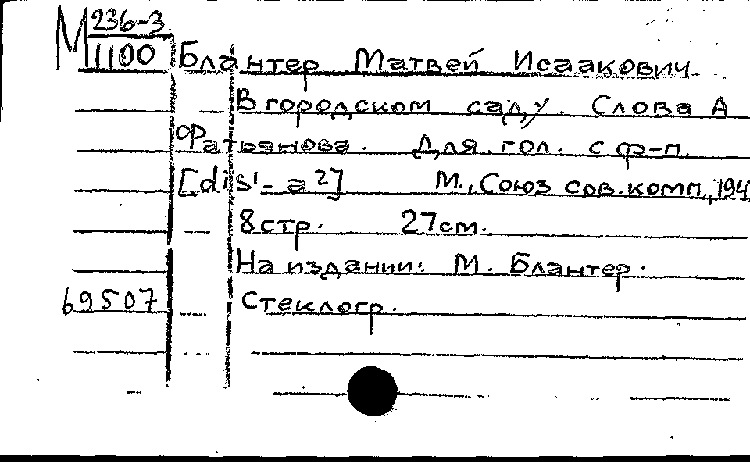 М 236-3
1100
Блантер Матвей Исаакович
В городском саду. Слова А
Фатьянова. Для гол. с ф-п.
[dis¹- a²] М., Союз сов. комп., 194
8 стр. 27 см.
На издании: М. Блантер.
69507 Стеклогр.